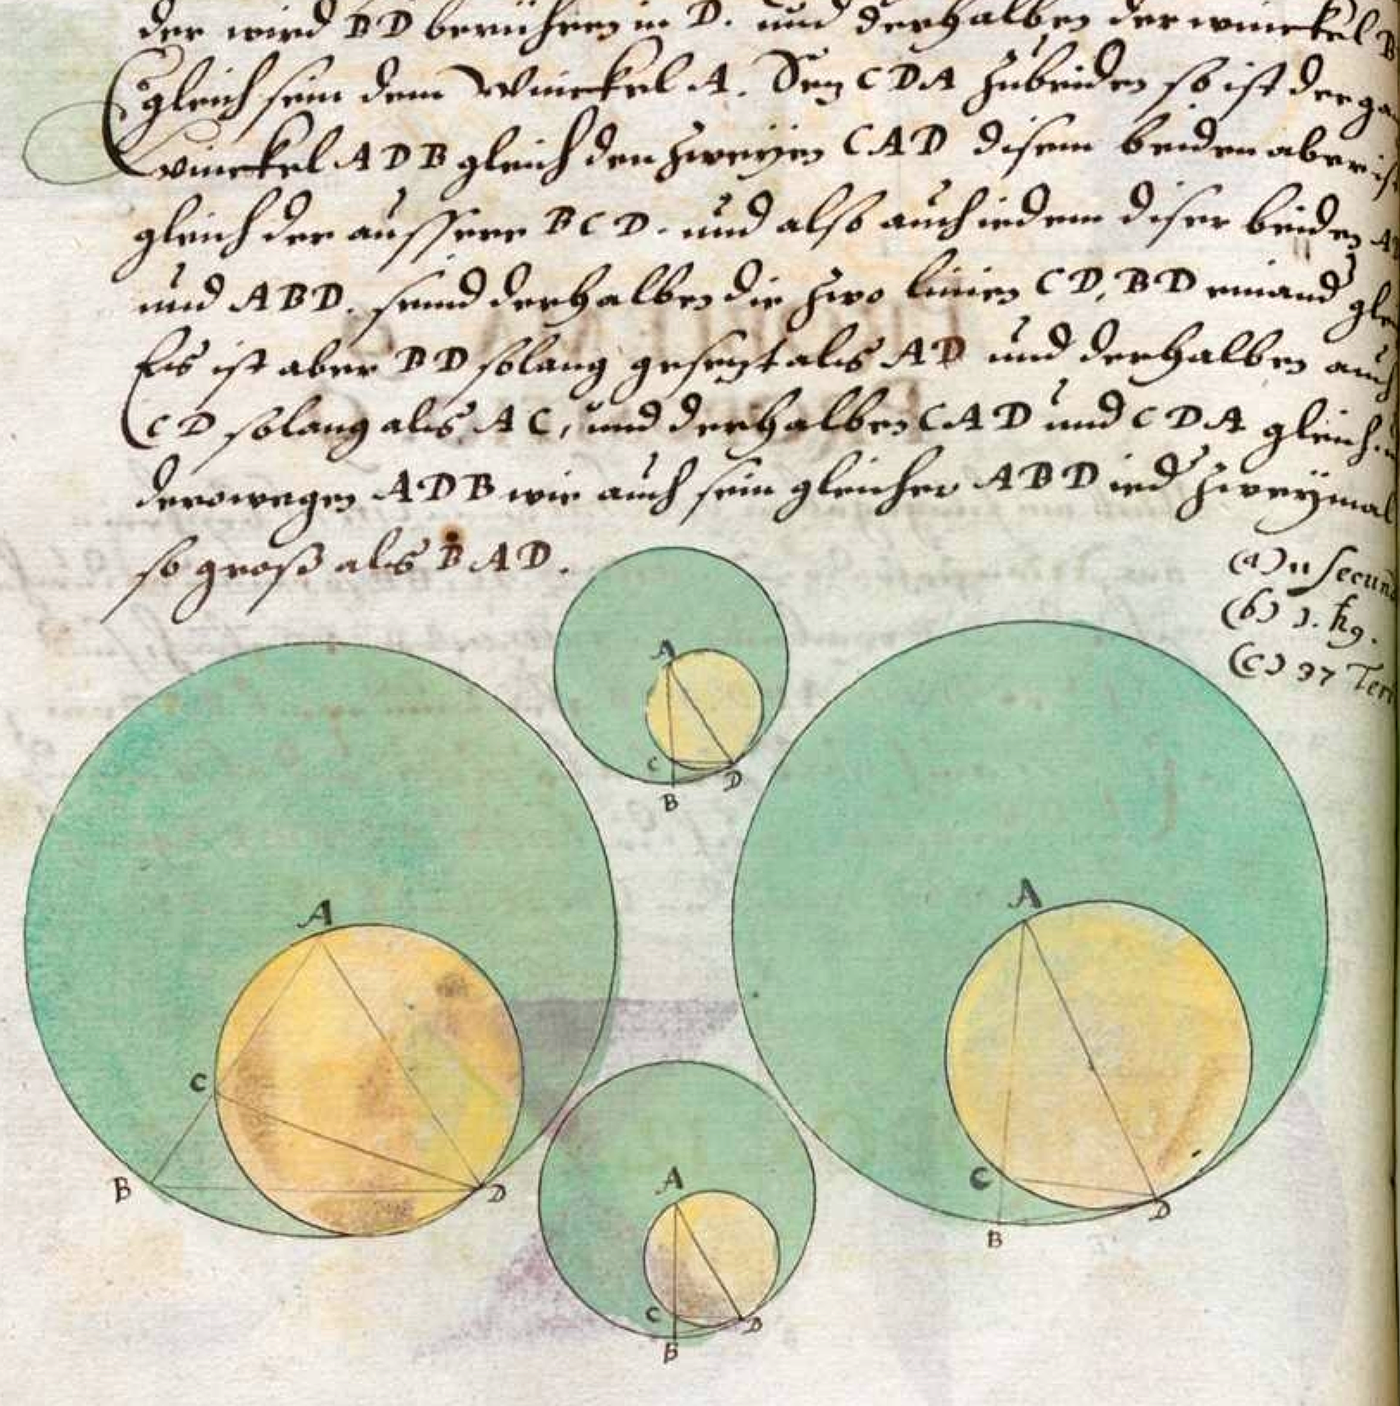 der wird BD berühren in D. und derhalben der winckel
gleich sein dem Winckel A. Sez CDA zubeiden so ist der
Winckel ADB gleich den zweyen CAD disem beiden aber ist
gleich der aussere BCD. und also auch iedem diser beiden
und ABD. seind derhalben die zwo linien CD, BD einand
Es ist aber BD solang gesezt als AD und derhalben auch
CD solang als AC, und derhalben CAD und CDA gleich
derowegen ADB wie auch sein gleicher ABD ied zweymal
so groß als BAD.
(a) 11 secun
(b) 1.
(c) 37 Ter
A
C
D
B
A
C
B
D
A
C
D
B
A
C
D
B